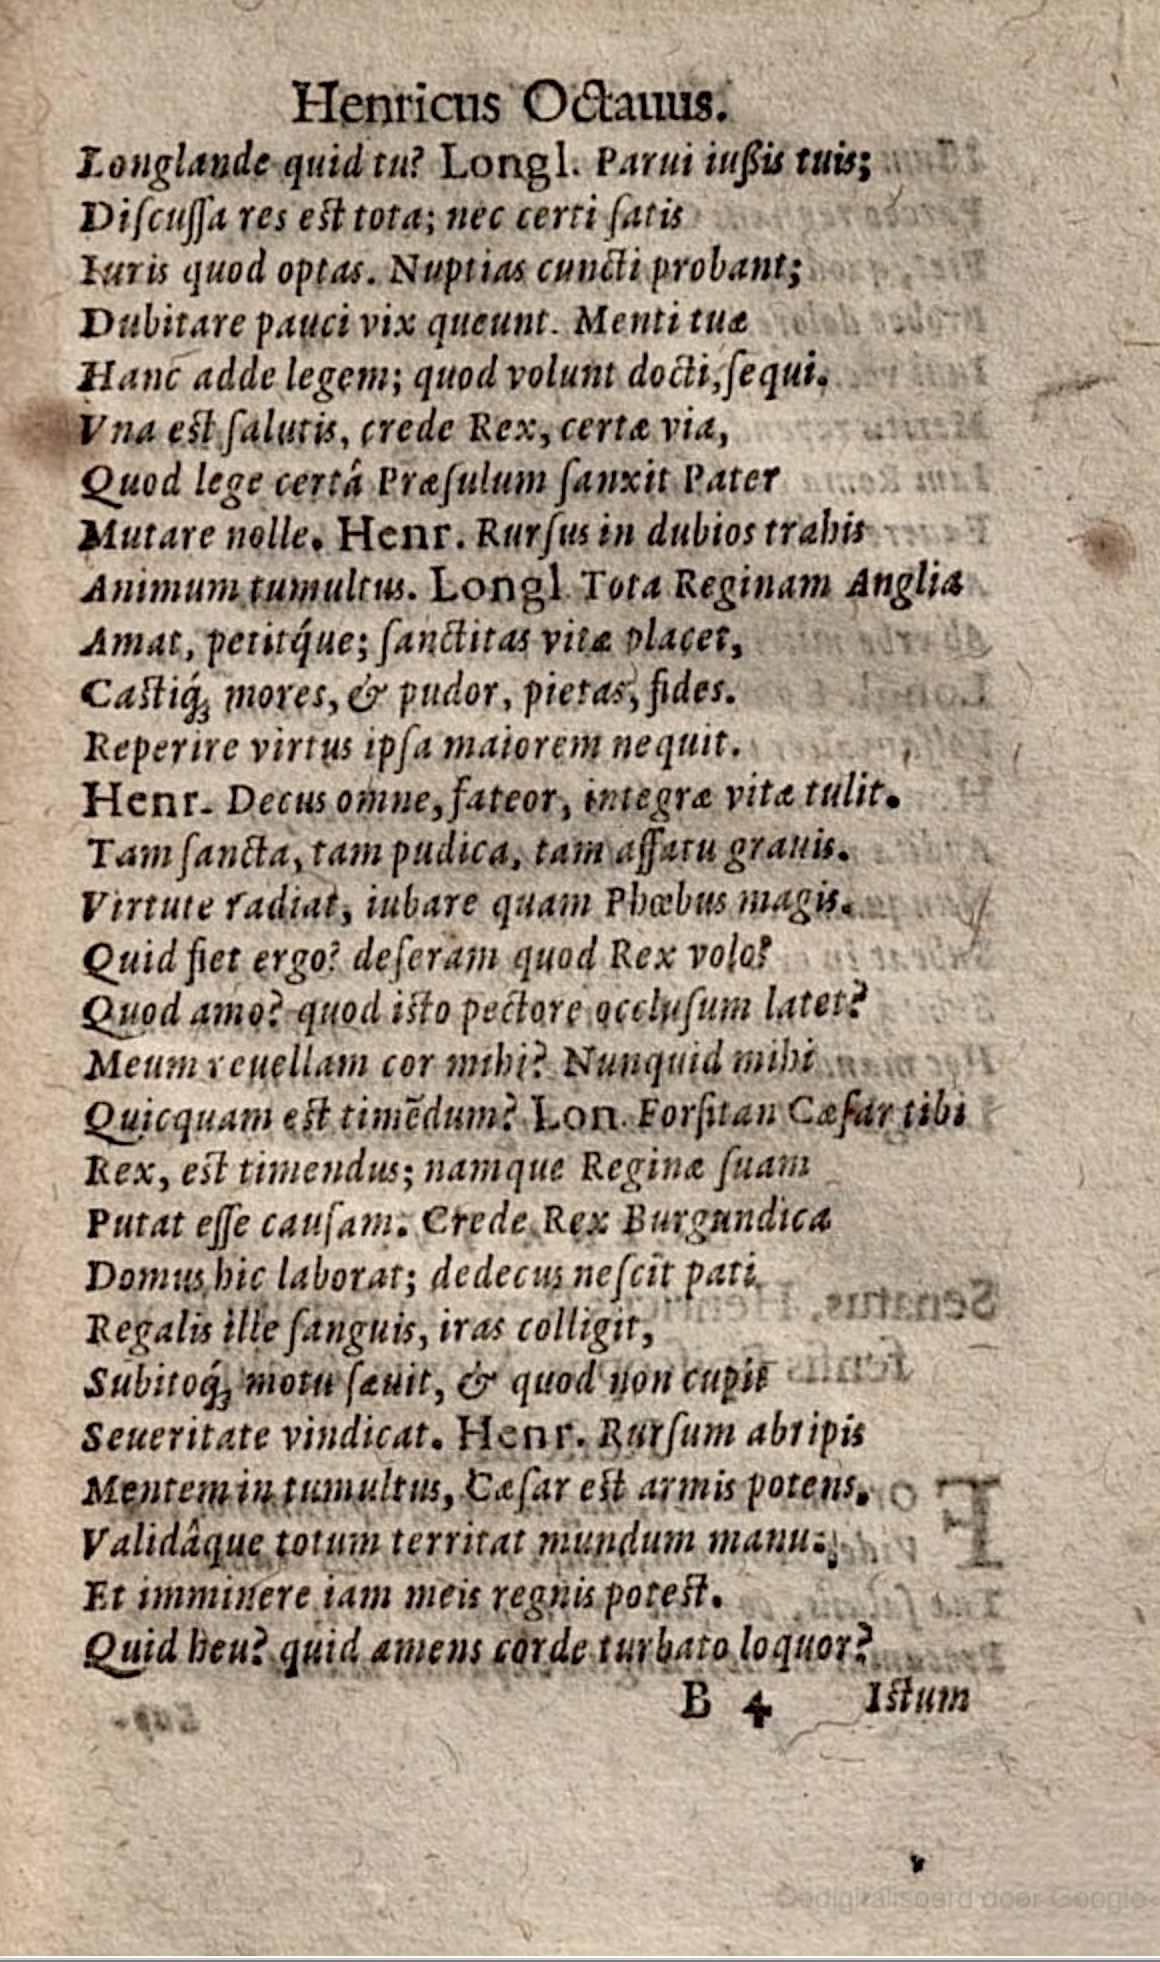 Henricus Octauus.
Longlande quid tu? Longl. Parui iußis tuis;
Diſcuſſa res est tota; nec certi ſatis
Iuris quod optas. Nuptias cuncti probant;
Dubitare pauci vix queunt. Menti tuæ
Hanc adde legem; quod volunt docti, ſequi.
Vna est ſalutis, crede Rex, certæ via,
Quod lege certâ Præſulum ſanxit Pater
Mutare nolle. Henr. Rurſus in dubios trahis
Animum tumultus. Longl. Tota Reginam Anglia
Amat, petitq́ue; ſanctitas vitæ placet,
Castiq́ꝫ mores, & pudor, pietas, fides.
Reperire virtus ipſa maiorem nequit.
Henr. Decus omne, fateor, integræ vitæ tulit.
Tam ſancta, tam pudica, tam aſſatu grauis.
Virtute radiat, iubare quam Phœbus magis.
Quid fiet ergo? deſeram quod Rex volo?
Quod amo? quod isto pectore occluſum latet?
Meum reuellam cor mihi? Nunquid mihi
Quicquam est timēdum? Lon. Forſitan Cæſar tibi
Rex, est timendus; namque Reginæ ſuam
Putat eſſe cauſam. Crede Rex Burgundica
Domus hic laborat; dedecus neſcit pati
Regalis ille ſanguis, iras colligit,
Subitoq́ꝫ motu ſæuit, & quod non cupit
Seueritate vindicat. Henr. Rurſum abripis
Mentem in tumultus, Cæſar est armis potens,
Validâque totum territat mundum manu:
Et imminere iam meis regnis potest.
Quid heu? quid amens corde turbato loquor?
B 4 Istum
Gedigitaliseerd door Google